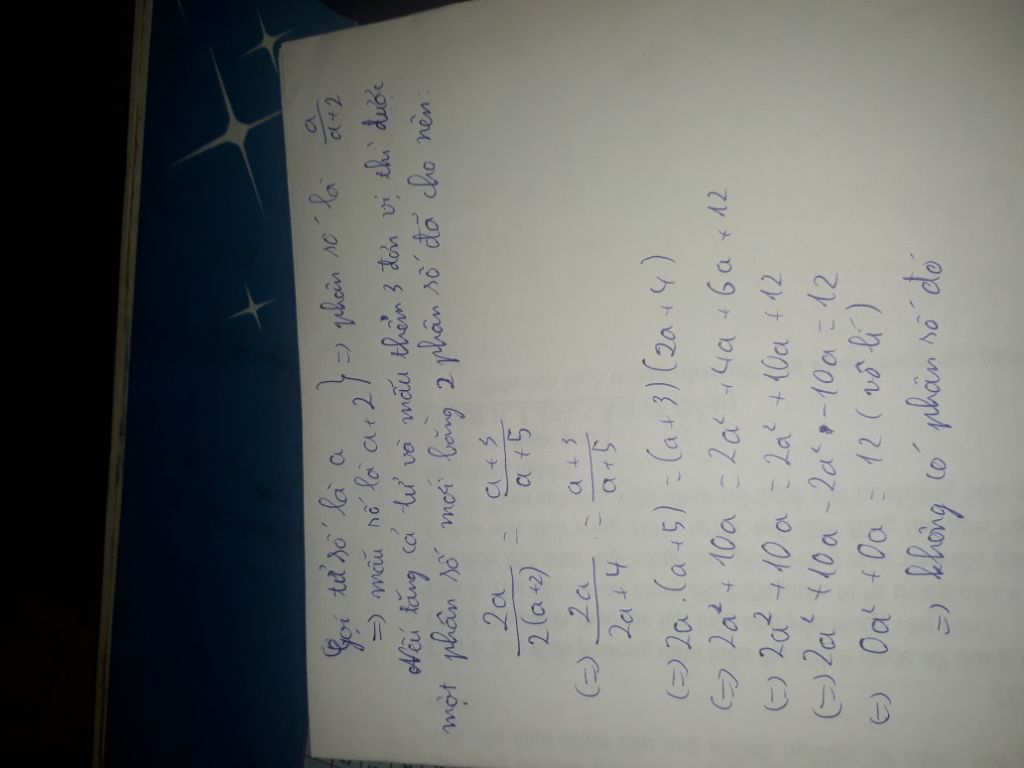 Gọi tử số là a
=> mẫu số là a+2 } => phân số là a/(a+2)
Nếu tăng cả tử và mẫu thêm 3 đơn vị thì được
một phân số mới bằng 2 phân số đã cho nên:
2a/(2(a+2)) = (a+3)/(a+5)
(=) 2a/(2a+4) = (a+3)/(a+5)
(=) 2a.(a+5) = (a+3)(2a+4)
(=) 2a² + 10a = 2a² + 4a + 6a + 12
(=) 2a² + 10a = 2a² + 10a + 12
(=) 2a² + 10a - 2a² - 10a = 12
(=) 0a² + 0a = 12 (vô lí)
=> không có phân số đó